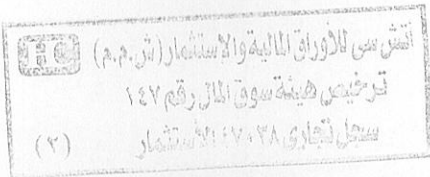 اتش سى للأوراق المالية والاستثمار (ش.م.م)
HC
ترخيص هيئة سوق المال رقم ١٤٧
سجل تجارى ٤٧٠٣٨ الاستثمار
(٢)